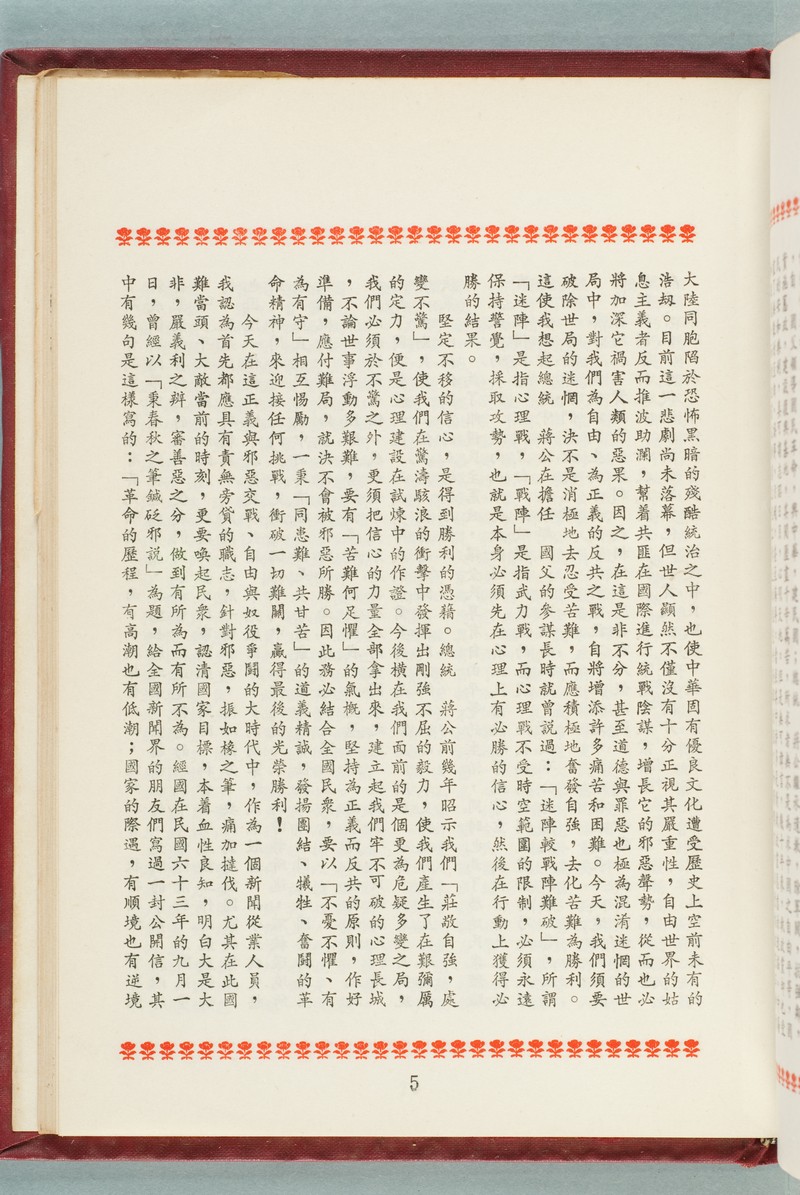 大陸同胞陷於恐怖黑暗的殘酷統治之中，也使中華固有優良文化遭受歷史上空前未有的
浩刼。目前這一悲劇尚未落幕，但世人顯然不僅沒有十分正視其嚴重性，自由世界的姑
息主義者反而推波助瀾，幫着共匪在國際進行統戰陰謀，增長它的邪惡聲勢，從而也必
將加深它禍害人類的惡果。因之，在這是非不分，甚至道德與罪惡也極為混淆迷惘的世
局中，對我們為自由、為正義的反共之戰，自將增添許多痛苦和困難。今天，我們須要
破除世局的迷惘，決不是消極地去忍受苦難，而應積極地奮發自強，去化苦難為勝利。
這使我想起總統　蔣公在擔任　國父的參謀長時就曾説過：「迷陣較戰陣難破」，所謂
「迷陣」是指心理戰，「戰陣」是指武力戰，而心理戰不受時空範圍的限制，必須永遠
保持警覺，採取攻勢，也就是本身必須先在心理上有必勝的信心，然後在行動上獲得必
勝的結果。
堅定不移的信心，是得到勝利的憑藉。總統　蔣公前幾年昭示我們「莊敬自強，處
變不驚」，使我們在驚濤駭浪的衝擊中發揮出剛強不屈的毅力，使我們產生了在艱彌厲
的定力，便是心理建設在試煉中的作證。今後橫在我們面前的是個更為危疑多變之局，
我們必須於不驚之外，更須把信心的力量全部拿出來，建立起我們牢不可破的心理長城
，不論世事浮動多艱難，要有「苦難何足懼」的氣概，堅持為正義而反共的原則，作好
準備，應付難局，就決不會被邪惡所勝。因此務必結合全國民衆，要以「不憂不懼、有
為有守」相互惕勵，一秉「同患難、共甘苦」的道義精誠，發揚團結、犧牲、奮鬪的革
命精神，來迎接任何挑戰，衝破一切難關，贏得最後的光榮勝利！
今天在這正義與邪惡交戰、自由與奴役爭鬪的大時代中，作為一個新聞從業人員，
我認為首先都應具有責無旁貸的職志，針對邪惡，振如椽之筆，痛加撻伐。尤其在此國
難當頭、大敵當前的時刻，更要喚起民衆，認清國家目標，本着血性良知，明白大是大
非，嚴義利之辨，審善惡之分，做到有所為而有所不為。經國在民國六十三年的九月一
日，曾經以「秉春秋之筆鍼砭邪説」為題，給全國新聞界的朋友們寫過一封公開信，其
中有幾句是這樣寫的：「革命的歷程，有高潮也有低潮；國家的際遇，有順境也有逆境
5